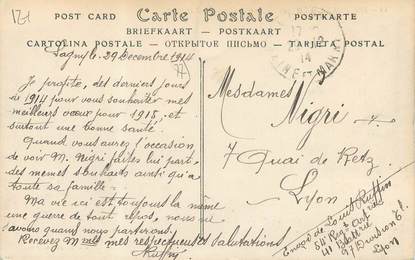 171
POST CARD Carte Postale POSTKARTE
BRIEFKAART — POSTKAART
CARTOLINA POSTALE — ОТКРЫТОЕ ПИСЬМО — TARJETA POSTAL
Lagny le 29 Decembre 1914
Je profite, des derniers jours
de 1914 pour vous souhaiter mes
meilleurs voeux pour 1915, et
surtout une bonne santé.
Quand vous aurez l'occasion
de voir M. Nigri faites lui part,
des memes souhaits ainsi qu'a
toute sa famille.
Ma vie ici est toujours la même
une guerre de tout repos, nous ne
avons quand nous partirons.
Recevez Mmes mes respectueuses salutations
Ruffin
Mesdames
Nigri
7 Quai de Retz
Lyon
Envoi de Louis Ruffin
54 Reg. Art
41 Batterie
97 Division Tle
Lyon